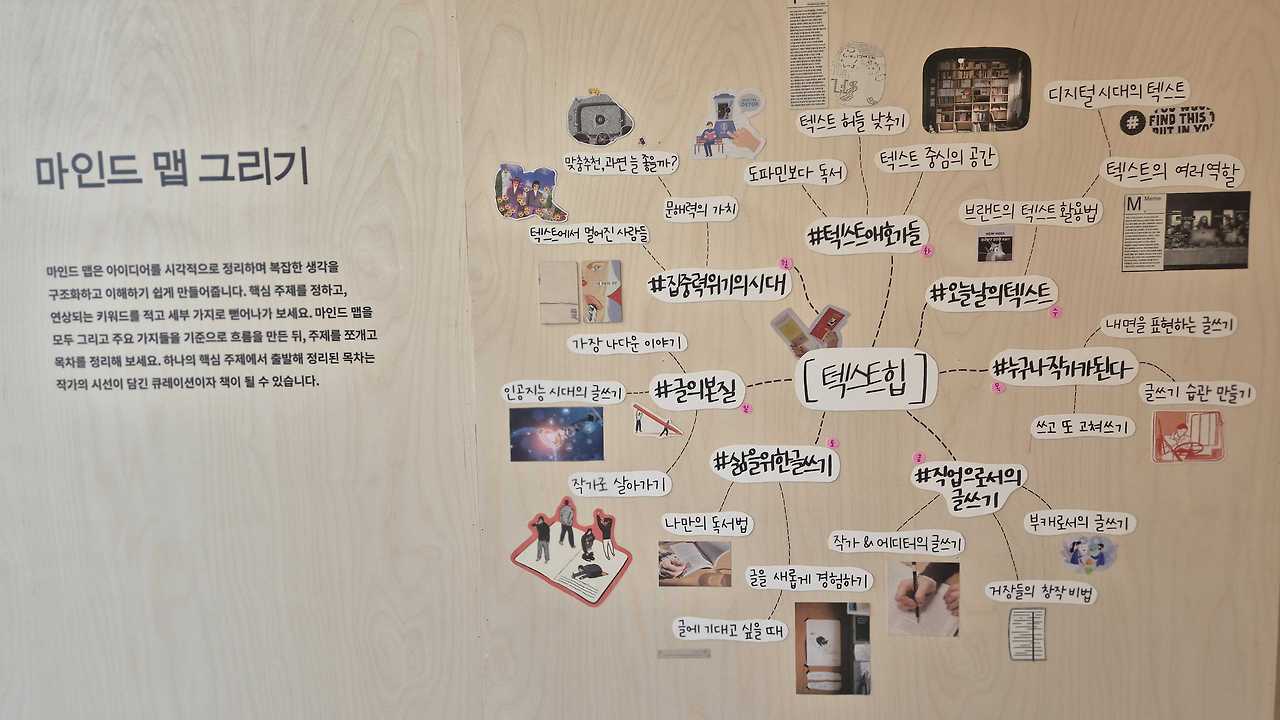 마인드 맵 그리기
마인드 맵은 아이디어를 시각적으로 정리하며 복잡한 생각을
구조화하고 이해하기 쉽게 만들어줍니다. 핵심 주제를 정하고,
연상되는 키워드를 적고 세부 가지로 뻗어나가 보세요. 마인드 맵을
모두 그리고 주요 가지들을 기준으로 흐름을 만든 뒤, 주제를 쪼개고
목차를 정리해 보세요. 하나의 핵심 주제에서 출발해 정리된 목차는
작가의 시선이 담긴 큐레이션이자 책이 될 수 있습니다.
[텍스트힙]
#집중력위기의시대
월
맞춤추천, 과연 늘 좋을까?
문해력의 가치
텍스트에서 멀어진 사람들
#텍스트애호가들
화
텍스트 허들 낮추기
도파민보다 독서
텍스트 중심의 공간
#오늘날의텍스트
수
디지털 시대의 텍스트
#
FIND THIS
텍스트의 여러역할
브랜드의 텍스트 활용법
M Meme
#누구나작가가된다
목
내면을 표현하는 글쓰기
글쓰기 습관 만들기
쓰고 또 고쳐쓰기
#직업으로서의
글쓰기
금
부캐로서의 글쓰기
작가 & 에디터의 글쓰기
거장들의 창작 비법
#삶을위한글쓰기
토
나만의 독서법
글을 새롭게 경험하기
글에 기대고 싶을 때
#글의본질
일
가장 나다운 이야기
인공지능 시대의 글쓰기
작가로 살아가기